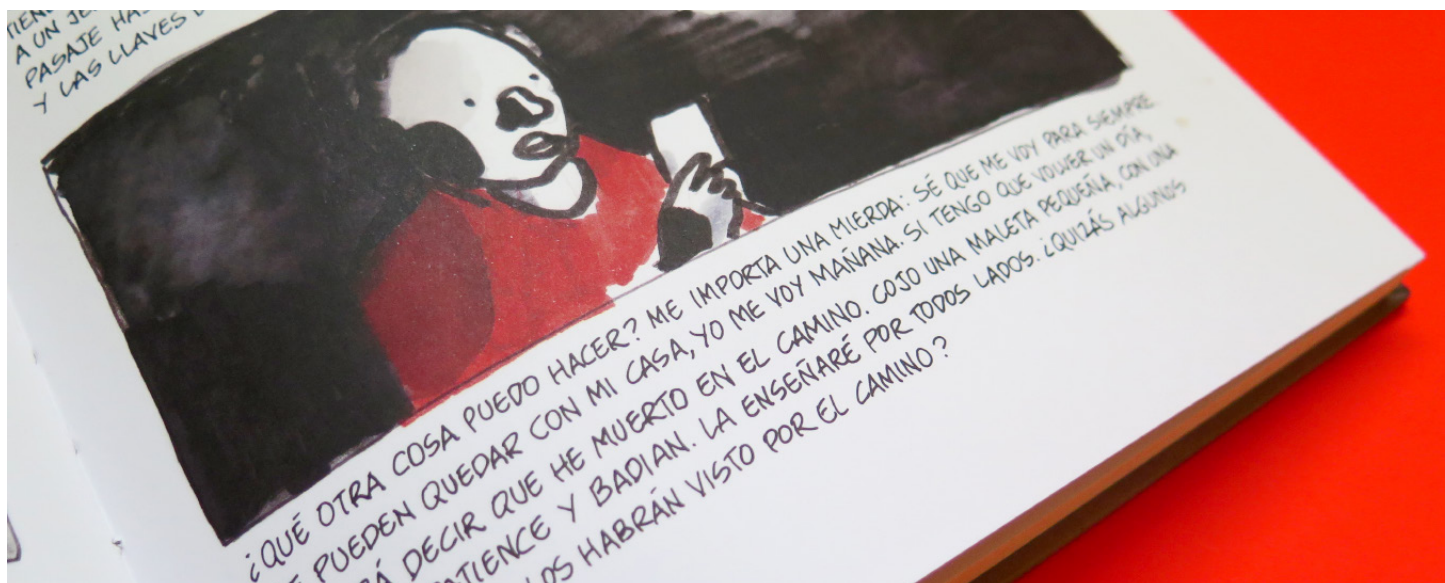 A UN
PASAJE
Y LAS LLAVES
¿QUÉ OTRA COSA PUEDO HACER? ME IMPORTA UNA MIERDA: SÉ QUE ME VOY PARA SIEMPRE.
PUEDEN QUEDAR CON MI CASA, YO ME VOY MAÑANA. SI TENGO QUE VOLVER UN DÍA,
DECIR QUE HE MUERTO EN EL CAMINO. COJO UNA MALETA PEQUEÑA, CON UNA
Y BADIAN. LA ENSEÑARÉ POR TODOS LADOS. ¿QUIZÁS ALGUNOS
HABRÁN VISTO POR EL CAMINO?